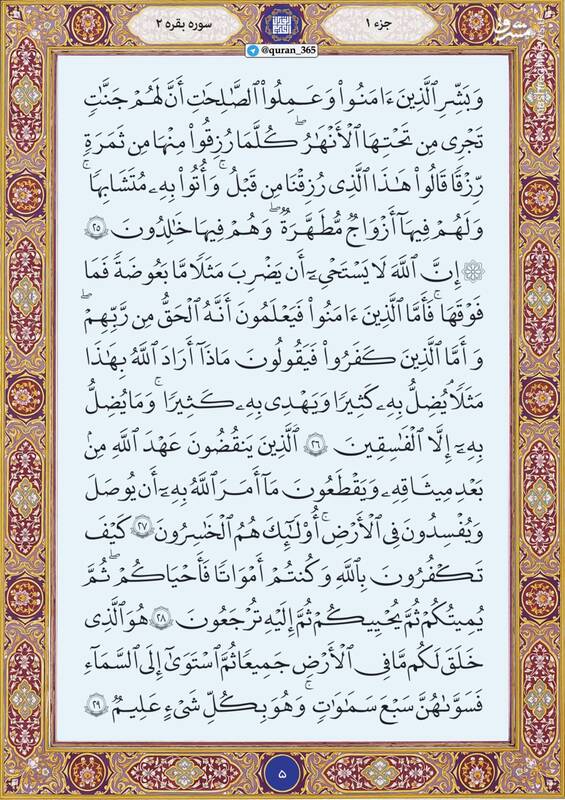 جزء ۱
سوره بقره ۲
@quran_365
وَبَشِّرِ ٱلَّذِينَ ءَامَنُوا۟ وَعَمِلُوا۟ ٱلصَّـٰلِحَـٰتِ أَنَّ لَهُمْ جَنَّـٰتٍ
تَجْرِى مِن تَحْتِهَا ٱلْأَنْهَـٰرُ ۖ كُلَّمَا رُزِقُوا۟ مِنْهَا مِن ثَمَرَةٍ
رِّزْقًا قَالُوا۟ هَـٰذَا ٱلَّذِى رُزِقْنَا مِن قَبْلُ ۖ وَأُتُوا۟ بِهِۦ مُتَشَـٰبِهًا ۖ
وَلَهُمْ فِيهَآ أَزْوَٰجٌ مُّطَهَّرَةٌ ۖ وَهُمْ فِيهَا خَـٰلِدُونَ ۲۵
إِنَّ ٱللَّهَ لَا يَسْتَحْىِۦٓ أَن يَضْرِبَ مَثَلًا مَّا بَعُوضَةً فَمَا
فَوْقَهَا ۚ فَأَمَّا ٱلَّذِينَ ءَامَنُوا۟ فَيَعْلَمُونَ أَنَّهُ ٱلْحَقُّ مِن رَّبِّهِمْ ۖ
وَأَمَّا ٱلَّذِينَ كَفَرُوا۟ فَيَقُولُونَ مَاذَآ أَرَادَ ٱللَّهُ بِهَـٰذَا
مَثَلًا ۘ يُضِلُّ بِهِۦ كَثِيرًا وَيَهْدِى بِهِۦ كَثِيرًا ۚ وَمَا يُضِلُّ
بِهِۦٓ إِلَّا ٱلْفَـٰسِقِينَ ۲۶ ٱلَّذِينَ يَنقُضُونَ عَهْدَ ٱللَّهِ مِنۢ
بَعْدِ مِيثَـٰقِهِۦ وَيَقْطَعُونَ مَآ أَمَرَ ٱللَّهُ بِهِۦٓ أَن يُوصَلَ
وَيُفْسِدُونَ فِى ٱلْأَرْضِ ۚ أُو۟لَـٰٓئِكَ هُمُ ٱلْخَـٰسِرُونَ ۲۷ كَيْفَ
تَكْفُرُونَ بِٱللَّهِ وَكُنتُمْ أَمْوَٰتًا فَأَحْيَـٰكُمْ ۖ ثُمَّ
يُمِيتُكُمْ ثُمَّ يُحْيِيكُمْ ثُمَّ إِلَيْهِ تُرْجَعُونَ ۲۸ هُوَ ٱلَّذِى
خَلَقَ لَكُم مَّا فِى ٱلْأَرْضِ جَمِيعًا ثُمَّ ٱسْتَوَىٰٓ إِلَى ٱلسَّمَآءِ
فَسَوَّىٰهُنَّ سَبْعَ سَمَـٰوَٰتٍ ۚ وَهُوَ بِكُلِّ شَىْءٍ عَلِيمٌ ۲۹
۵